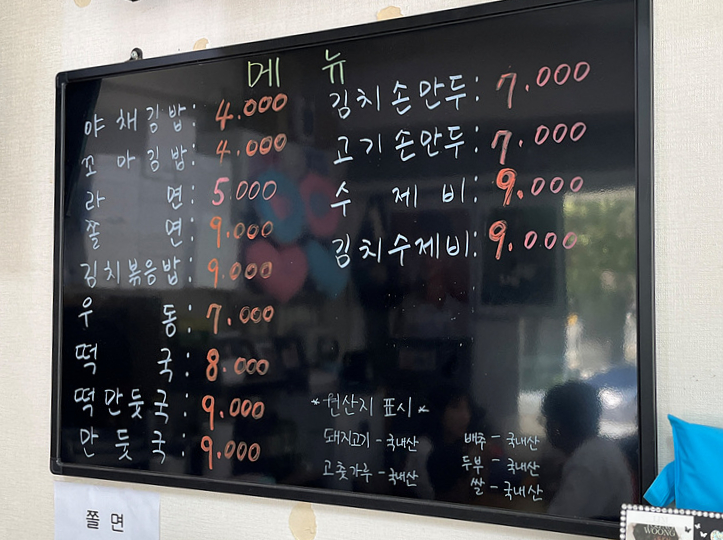 메 뉴
야채김밥: 4.000
꼬마김밥: 4.000
라 면: 5.000
쫄 면: 9.000
김치볶음밥: 9.000
우 동: 7.000
떡 국: 8.000
떡만둣국: 9.000
만둣국: 9.000
김치손만두: 7.000
고기손만두: 7.000
수 제 비: 9.000
김치수제비: 9.000
*원산지 표시*
돼지고기 - 국내산
고춧가루 - 국내산
배추 - 국내산
두부 - 국내산
쌀 - 국내산
쫄 면
WOONG